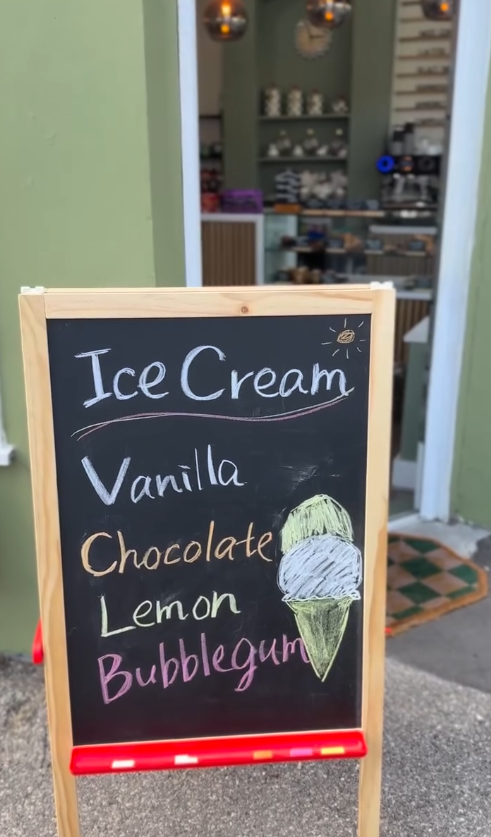 Ice Cream
Vanilla
Chocolate
Lemon
Bubblegum